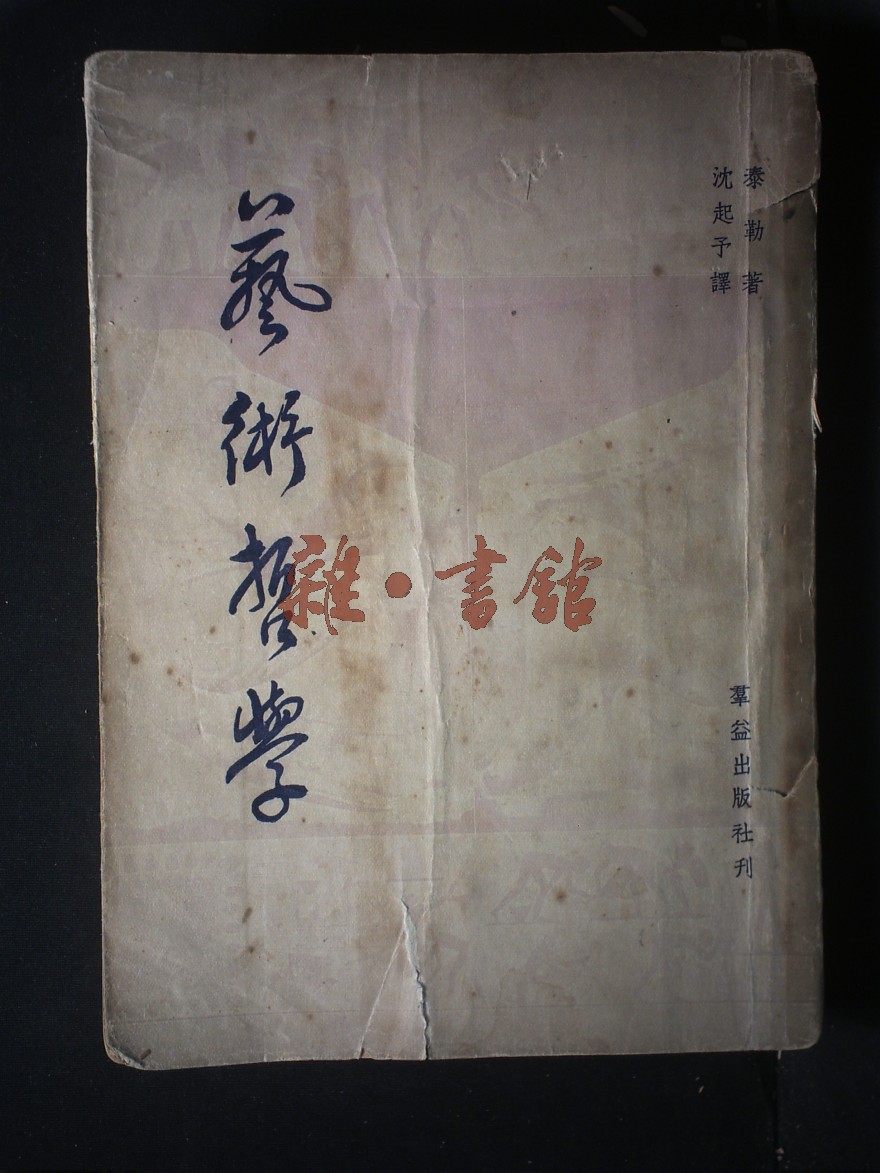 泰勒著
沈起予譯
藝術哲學
羣益出版社刊
雜·書館